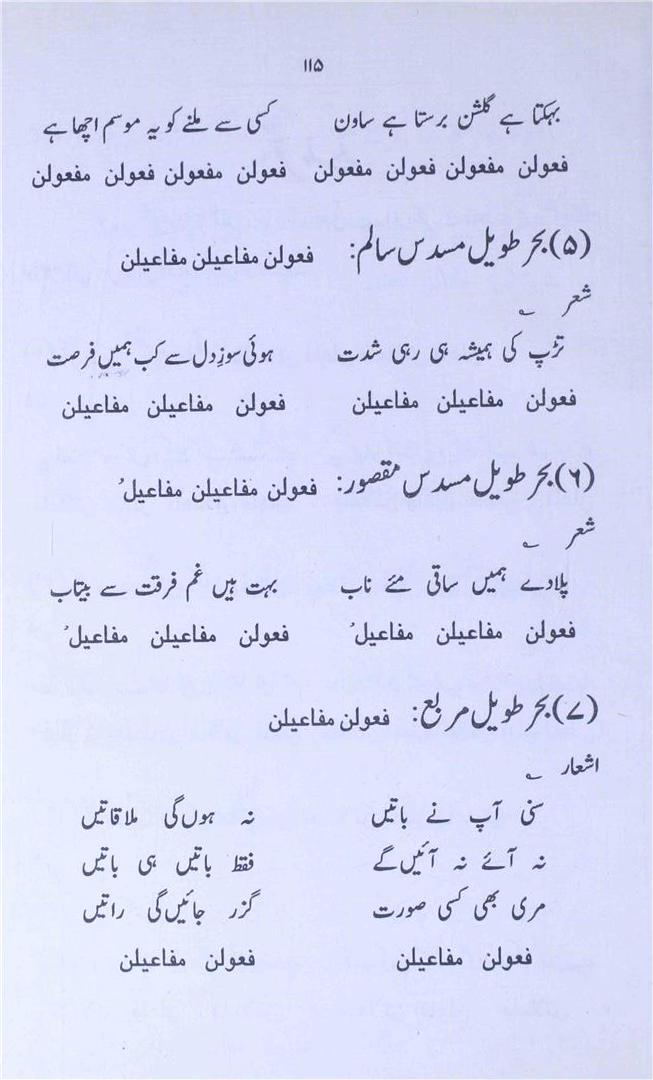 ۱۱۵
بہکتا ہے گلشن برستا ہے ساون کسی سے ملنے کو یہ موسم اچھا ہے
فعولن مفعولن فعولن مفعولن فعولن مفعولن فعولن مفعولن
(۵) بحر طویل مسدس سالم: فعولن مفاعیلن مفاعیلن
شعر ؎
تڑپ کی ہمیشہ ہی رہی شدت ہوئی سوزِ دل سے کب ہمیں فرصت
فعولن مفاعیلن مفاعیلن فعولن مفاعیلن مفاعیلن
(۶) بحر طویل مسدس مقصور: فعولن مفاعیلن مفاعیلُ
شعر ؎
پلادے ہمیں ساقی مئے ناب بہت ہیں غم فرقت سے بیتاب
فعولن مفاعیلن مفاعیلُ فعولن مفاعیلن مفاعیلُ
(۷) بحر طویل مربع: فعولن مفاعیلن
اشعار ؎
سنی آپ نے باتیں نہ ہوں گی ملاقاتیں
نہ آئے نہ آئیں گے فقط باتیں ہی باتیں
مری بھی کسی صورت گزر جائیں گی راتیں
فعولن مفاعیلن فعولن مفاعیلن